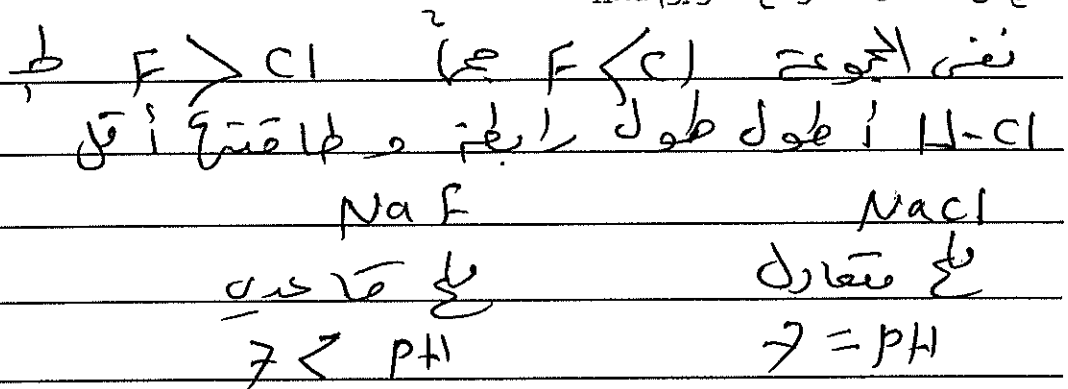 نفس المجموعة F < Cl حجماً F > Cl ط
H-Cl أطول طول رابطة و طاقتها أقل
NaCl NaF
ملح متعادل ملح قاعدي
7 = PH 7 < PH